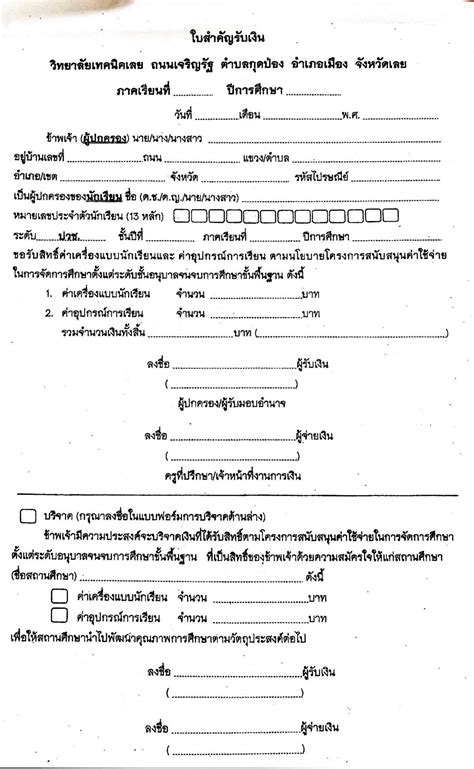 ใบสำคัญรับเงิน
วิทยาลัยเทคนิคเลย ถนนเจริญรัฐ ตำบลกุดป่อง อำเภอเมือง จังหวัดเลย
ภาคเรียนที่ ............ ปีการศึกษา ................
วันที่ ................เดือน ..........................พ.ศ. ................
ข้าพเจ้า (ผู้ปกครอง) นาย/นาง/นางสาว ................................
อยู่บ้านเลขที่ .................. ถนน ........................ แขวง/ตำบล ........................
อำเภอ/เขต .................. จังหวัด .................. รหัสไปรษณีย์ ..................
เป็นผู้ปกครองของนักเรียน ชื่อ (ด.ช./ด.ญ./นาย/นางสาว) ................................
หมายเลขประจำตัวนักเรียน (13 หลัก)
ระดับ......ปวช.......... ชั้นปีที่ ............ ภาคเรียนที่ ............ปีการศึกษา ................
ขอรับสิทธิ์ค่าเครื่องแบบนักเรียนและ ค่าอุปกรณ์การเรียน ตามนโยบายโครงการสนับสนุนค่าใช้จ่าย
ในการจัดการศึกษาตั้งแต่ระดับชั้นอนุบาลจนจบการศึกษาขั้นพื้นฐาน ดังนี้
1. ค่าเครื่องแบบนักเรียน จำนวน ........................บาท
2. ค่าอุปกรณ์การเรียน จำนวน ........................บาท
รวมจำนวนเงินทั้งสิ้น ........................บาท (................................)
ลงชื่อ ................................ผู้รับเงิน
(................................)
ผู้ปกครอง/ผู้รับมอบอำนาจ
ลงชื่อ ................................ผู้จ่ายเงิน
(................................)
ครูที่ปรึกษา/เจ้าหน้าที่งานการเงิน
บริจาค (กรุณาลงชื่อในแบบฟอร์มการบริจาคด้านล่าง)
ข้าพเจ้ามีความประสงค์จะบริจาคเงินที่ได้รับสิทธิ์ตามโครงการสนับสนุนค่าใช้จ่ายในการจัดการศึกษา
ตั้งแต่ระดับอนุบาลจนจบการศึกษาขั้นพื้นฐาน ที่เป็นสิทธิ์ของข้าพเจ้าด้วยความสมัครใจให้แก่สถานศึกษา
(ชื่อสถานศึกษา) ................................ ดังนี้
ค่าเครื่องแบบนักเรียน จำนวน ........................บาท
ค่าอุปกรณ์การเรียน จำนวน ........................บาท
เพื่อให้สถานศึกษานำไปพัฒนาคุณภาพการศึกษาตามวัตถุประสงค์ต่อไป
ลงชื่อ ................................ผู้รับเงิน
(................................)
ลงชื่อ ................................ผู้จ่ายเงิน
(................................)